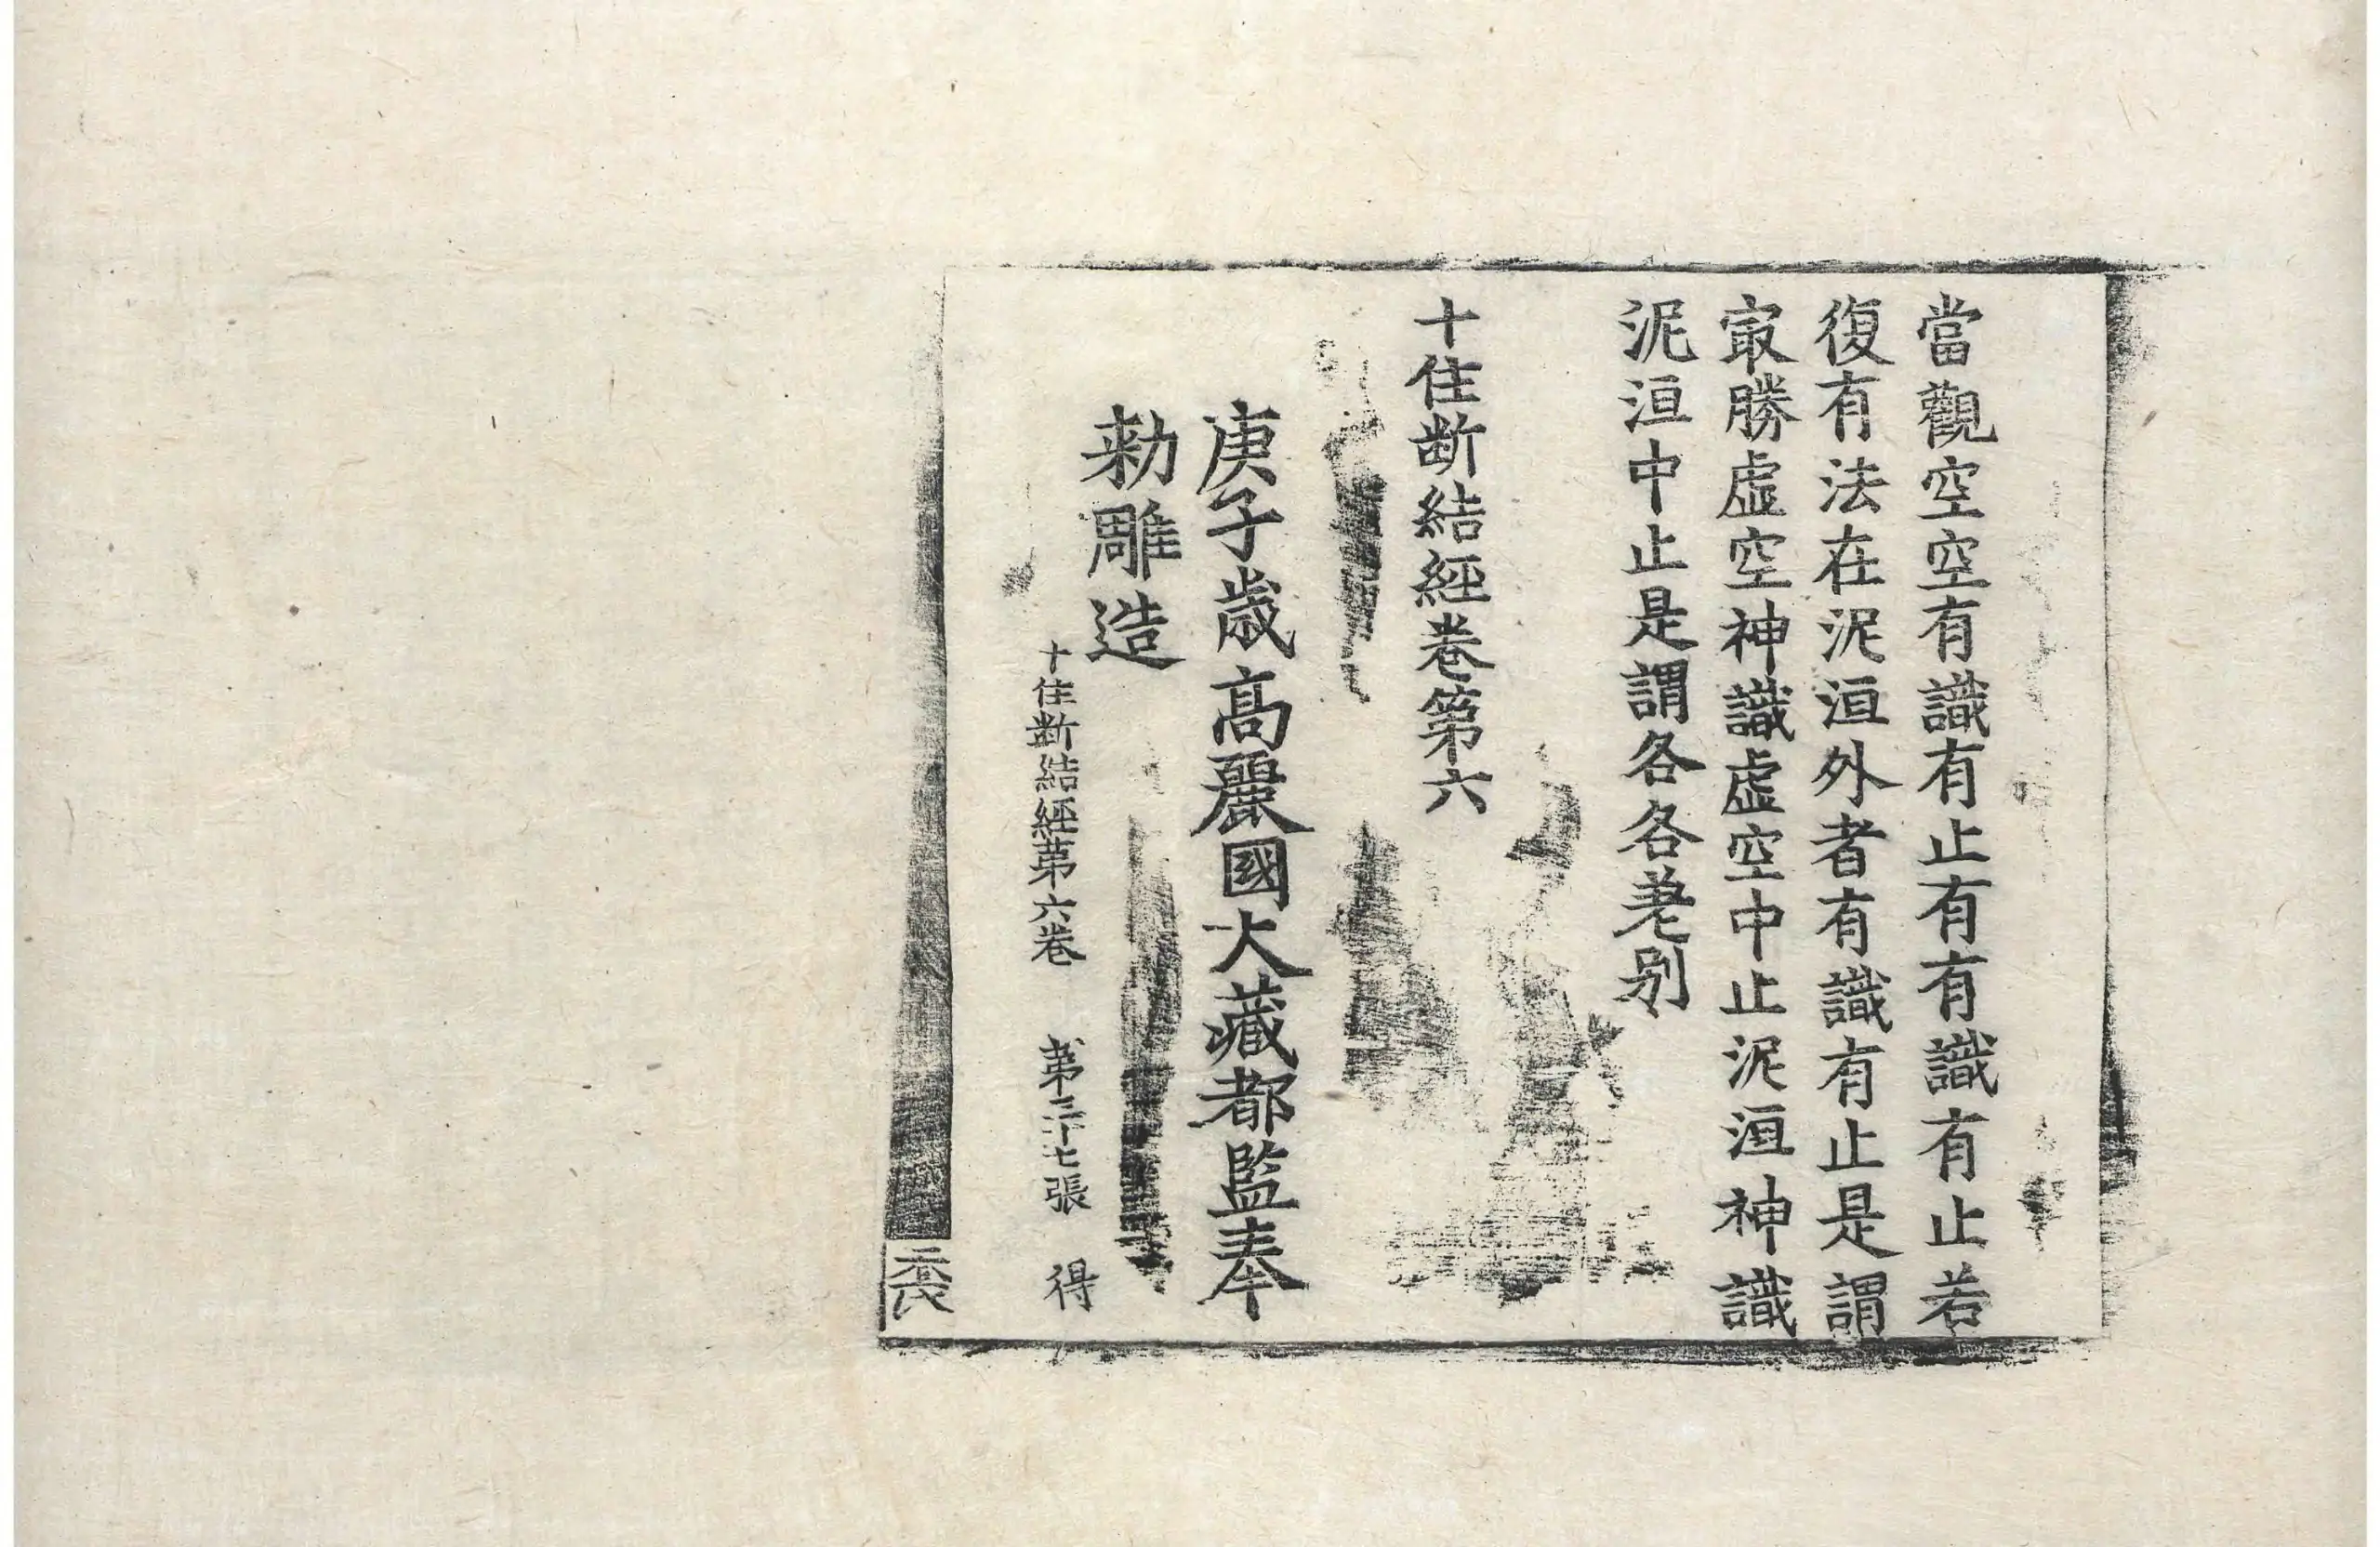 當觀空空有識有止有有識有止若
復有法在泥洹外者有識有止是謂
㝡勝虛空神識虛空中止泥洹神識
泥洹中止是謂各各差別
十住断結經卷第六
庚子歲高麗國大藏都監奉
勑雕造
十住断結經第六卷 第三十七張 得